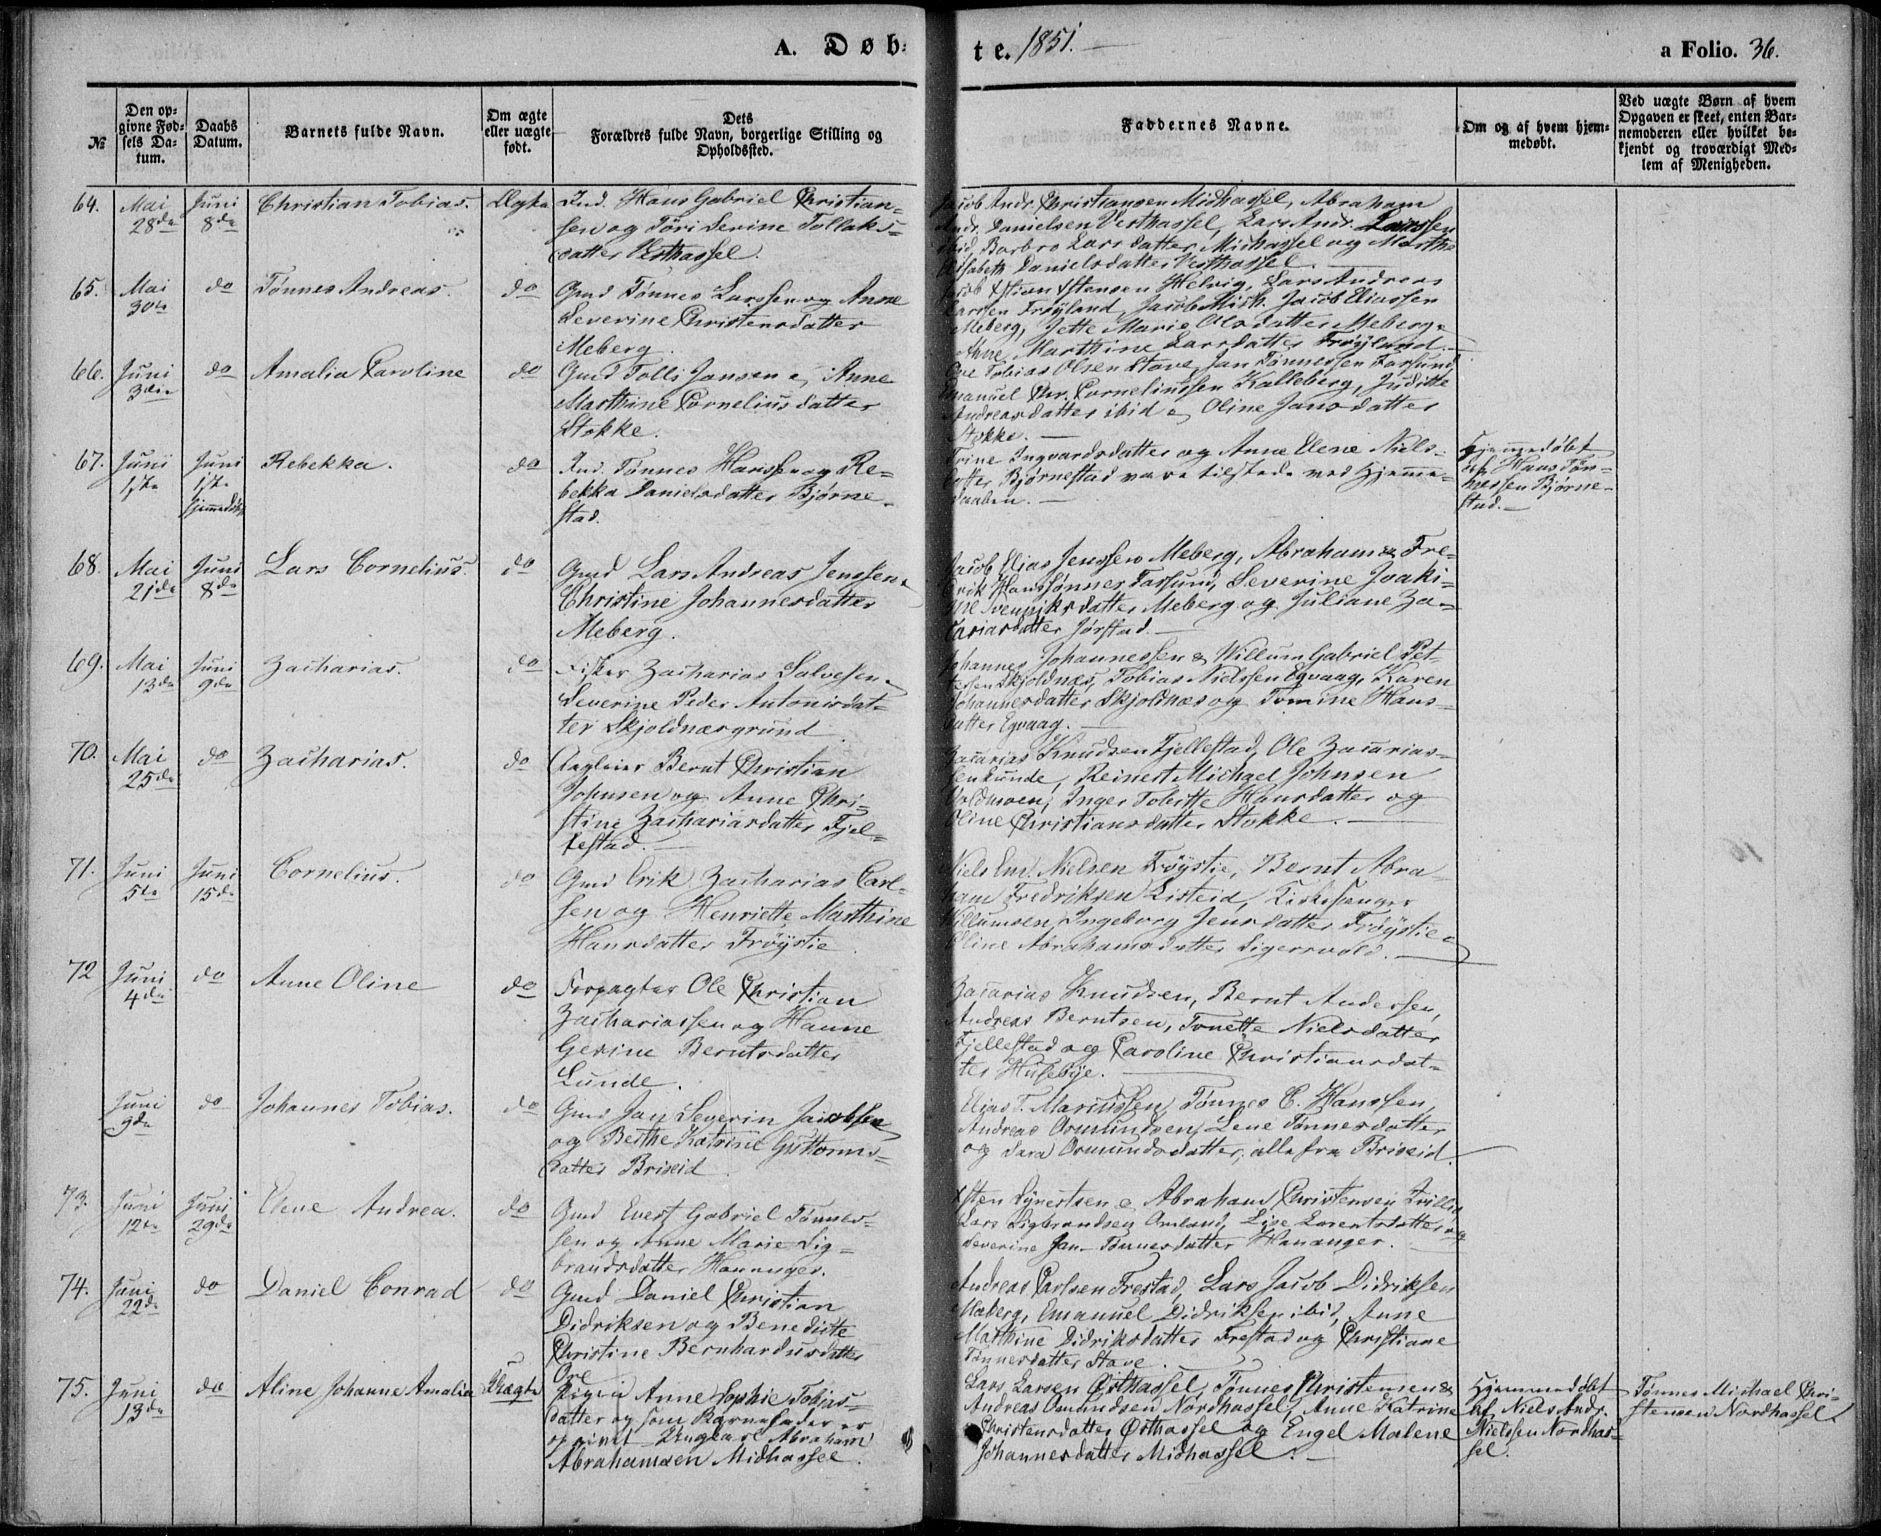 A. Døb-
te. 1851.
a Folio. 36.
№
Den op-
givne Fød-
sels Da-
tum.
Daabs
Datum.
Barnets fulde Navn.
Om ægte
eller uægte
født.
Dets
Forældres fulde Navn, borgerlige Stilling og
Opholdssted.
Faddernes Navne.
Om og af hvem hjem-
medøbt.
Ved uægte Børn af hvem
Opgaven er skeet, enten Bar-
nemoderen eller hvilket be-
kjendt og troværdigt Med-
lem af Menigheden.
64.
Mai
28de
Juni
8de
Christian Tobias.
Ægte
Ind. Hans Gabriel Christian-
sen og Tøri Serine Tollaks-
datter Vesthassel.
Jacob Andr. Christiansen Midhassel, Abraham
Andr. Danielsen Vesthassel, Lars Andr. Larssen
ibid, Barbro Larsdatter Midhassel og Marthe
Elisabeth Danielsdatter Vesthassel.
65.
Mai
30te
do
Tønnes Andreas.
do
Gmd Tønnes Larssen og Anne
Severine Christensdatter
Meberg.
Helvig, Lars Andreas
Larssen Frøyland, Jacob Mich. Jacob Eliassen
Meberg, Jette Marie Olsdatter Meberg,
Anne Marthine Larsdatter Frøyland.
66.
Juni
3die
do
Amalia Caroline
do
Gmd Tolli Jansen & Anne
Marthine Corneliusdatter
Stokke.
Ove Tobias Olsen Stave, Jan Tønnessen Farsund,
Emanuel Chr. Corneliussen Kalleberg, Juditte
Andreasdatter ibid & Oline Jansdatter
Stokke.
67.
Juni
1ste
Juni
1ste
hjemmedøbt
Rebekka.
do
Ind. Tønnes Hanssen og Re-
bekka Danielsdatter Bjørne-
stad.
Trine Ingvardsdatter og Anne Elene Niels-
datter Bjørnestad vare tilstede ved Hjemme-
daaben.
Hjemmedøbt
af Hans Tøn-
nessen Bjørne-
stad.
68.
Mai
21de
Juni
8de
Lars Cornelius.
do
Gmd Lars Andreas Jenssen &
Christine Johannesdatter
Meberg.
Jacob Elias Jenssen Meberg, Abraham & Fre-
drik Hanssønner Farsund, Severine Joaki-
Meberg og Juliane Za-
cariasdatter Jørstad.
69.
Mai
13de
Juni
9de
Zacharias.
do
Fisker Zacharias Salvesen &
Severine Peder Antonisdat-
ter Skjoldnæsgrund.
Johannes Johannessen & Villum Gabriel Pet-
tersen Skjoldnæs, Tobias Nielssen Egvaag, Karen
Johannesdatter Skjoldnæs og Tomine Hans-
datter Egvaag.
70.
Mai
25de
do
Zacharias.
do
Bernt Christian
Johnsen og Anne Chri-
stine Zachariasdatter Fjel-
lestad.
Zacarias Knudsen Fjellestad, Ole Zacarias-
sen Lunde, Reinert Michael Johnsen
Voldmoen, Inger Tobitte Hansdatter og
Oline Christiansdatter Stokke.
71.
Juni
5te
Juni
15de
Cornelius.
do
Gmd Erik Zacharias Carl-
sen og Henriette Marthine
Hansdatter Frøystie
Niels Em. Nielsen Frøystie, Bernt Abra-
ham Fredriksen Listeid, Kirkesanger
Willumsen, Ingeborg Jensdatter Frøystie &
Oline Abrahamsdatter Sigersvold.
72
Juni
4de
do
Anne Oline
do
Forpagter Ole Christian
Zachariassen og Hanne
Gerine Berntsdatter
Lunde.
Zacarias Knudsen, Bernt Andersen,
Andreas Berntsen, Tonette Nielsdatter
Fjellestad og Caroline Christiansdat-
ter Husebye.
Juni
9de
do
Johannes Tobias.
do
Gmd Jan Severin Jacobsen
og Berthe Katrine Guttorms-
datter Briseid.
Elias T. Mariussen, Tønnes C. Hanssen,
Andreas Osmundsen, Lene Tønnesdatter
og Sara Osmundsdatter, alle fra Briseid.
73.
Juni
12te
Juni
29de
Elene Andrea.
do
Gmd Evert Gabriel Tønnes-
sen og Anne Marie Sig-
brandsdatter Hananger.
Abraham Christensen
Lars Sigbrandsen Omland, Lise Lorentsdatter og
Severine Jan-Tønnesdatter Hananger.
74.
Juni
22de
do
Daniel Conrad
do
Gmd Daniel Christian
Didriksen og Benedicte
Christine Bernhardusdatter
Ore
Andreas Carlsen Frestad, Lars Jacob Didriksen
Meberg, Emanuel Didriksen ibid, Anne
Marthine Didriksdatter Frestad og Christiane
Tønnesdatter Stave.
75.
Juni
13de
do
Aline Johanne Amalia
Uægte
Pigen Anne Sophie Tobias-
datter og som Barnefader er
opgivet Ungkarl Abraham
Abrahamsen Midhassel.
Lars Larsen Østhassel, Tønnes Christensen &
Andreas Omundsen Nordhassel, Anne Katrine
Christensdatter Østhassel og Engel Malene
Johannesdatter Midhassel.
Hjemmedøbt
af Niels Andr.
Nielssen Nordhas-
sel.
Tønnes Michael Chri-
stensen Nordhassel